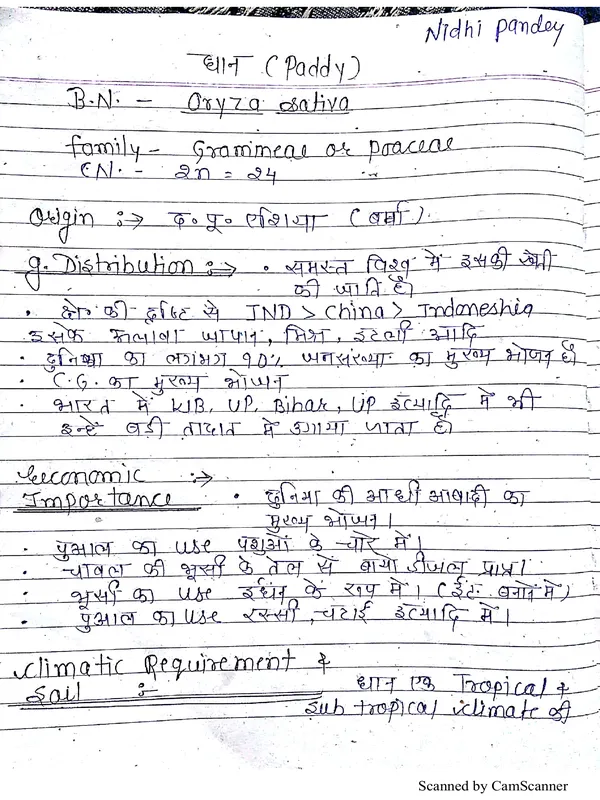 Nidhi Pandey
धान (Paddy)
B.N. - Oryza sativa
family - Grammeae or poaceae
CN. - 2n = 24
Origin :-> द. पू. एशिया (बर्मा)
g. Distribution :-> • समस्त विश्व में इसकी खेती
की जाति है।
• क्षेत्र की दृष्टि से IND > China > Indoneshia
इसके अलावा जापान, मिश्र, इटली आदि
• दुनिया का लगभग 90% जनसंख्या का मुख्य भोजन है
• C.G. का मुख्य भोजन
• भारत में WB, UP, Bihar, UP इत्यादि में भी
इन्हें बड़ी तादात में उगाया जाता है।
Economic :->
Importance • दुनिया की आधी आबादी का
मुख्य भोजन।
• पुआल का use पशुओं के चारे में।
• चावल की भूसी के तेल से बायो डीजल प्राप्त।
• भूसी का use ईधन के रूप में। (ईट बनाने में)
• पुआल का use रस्सी, चटाई इत्यादि में।
climatic Requirement &
soil :- धान एक Tropical &
sub tropical climate की
Scanned by CamScanner